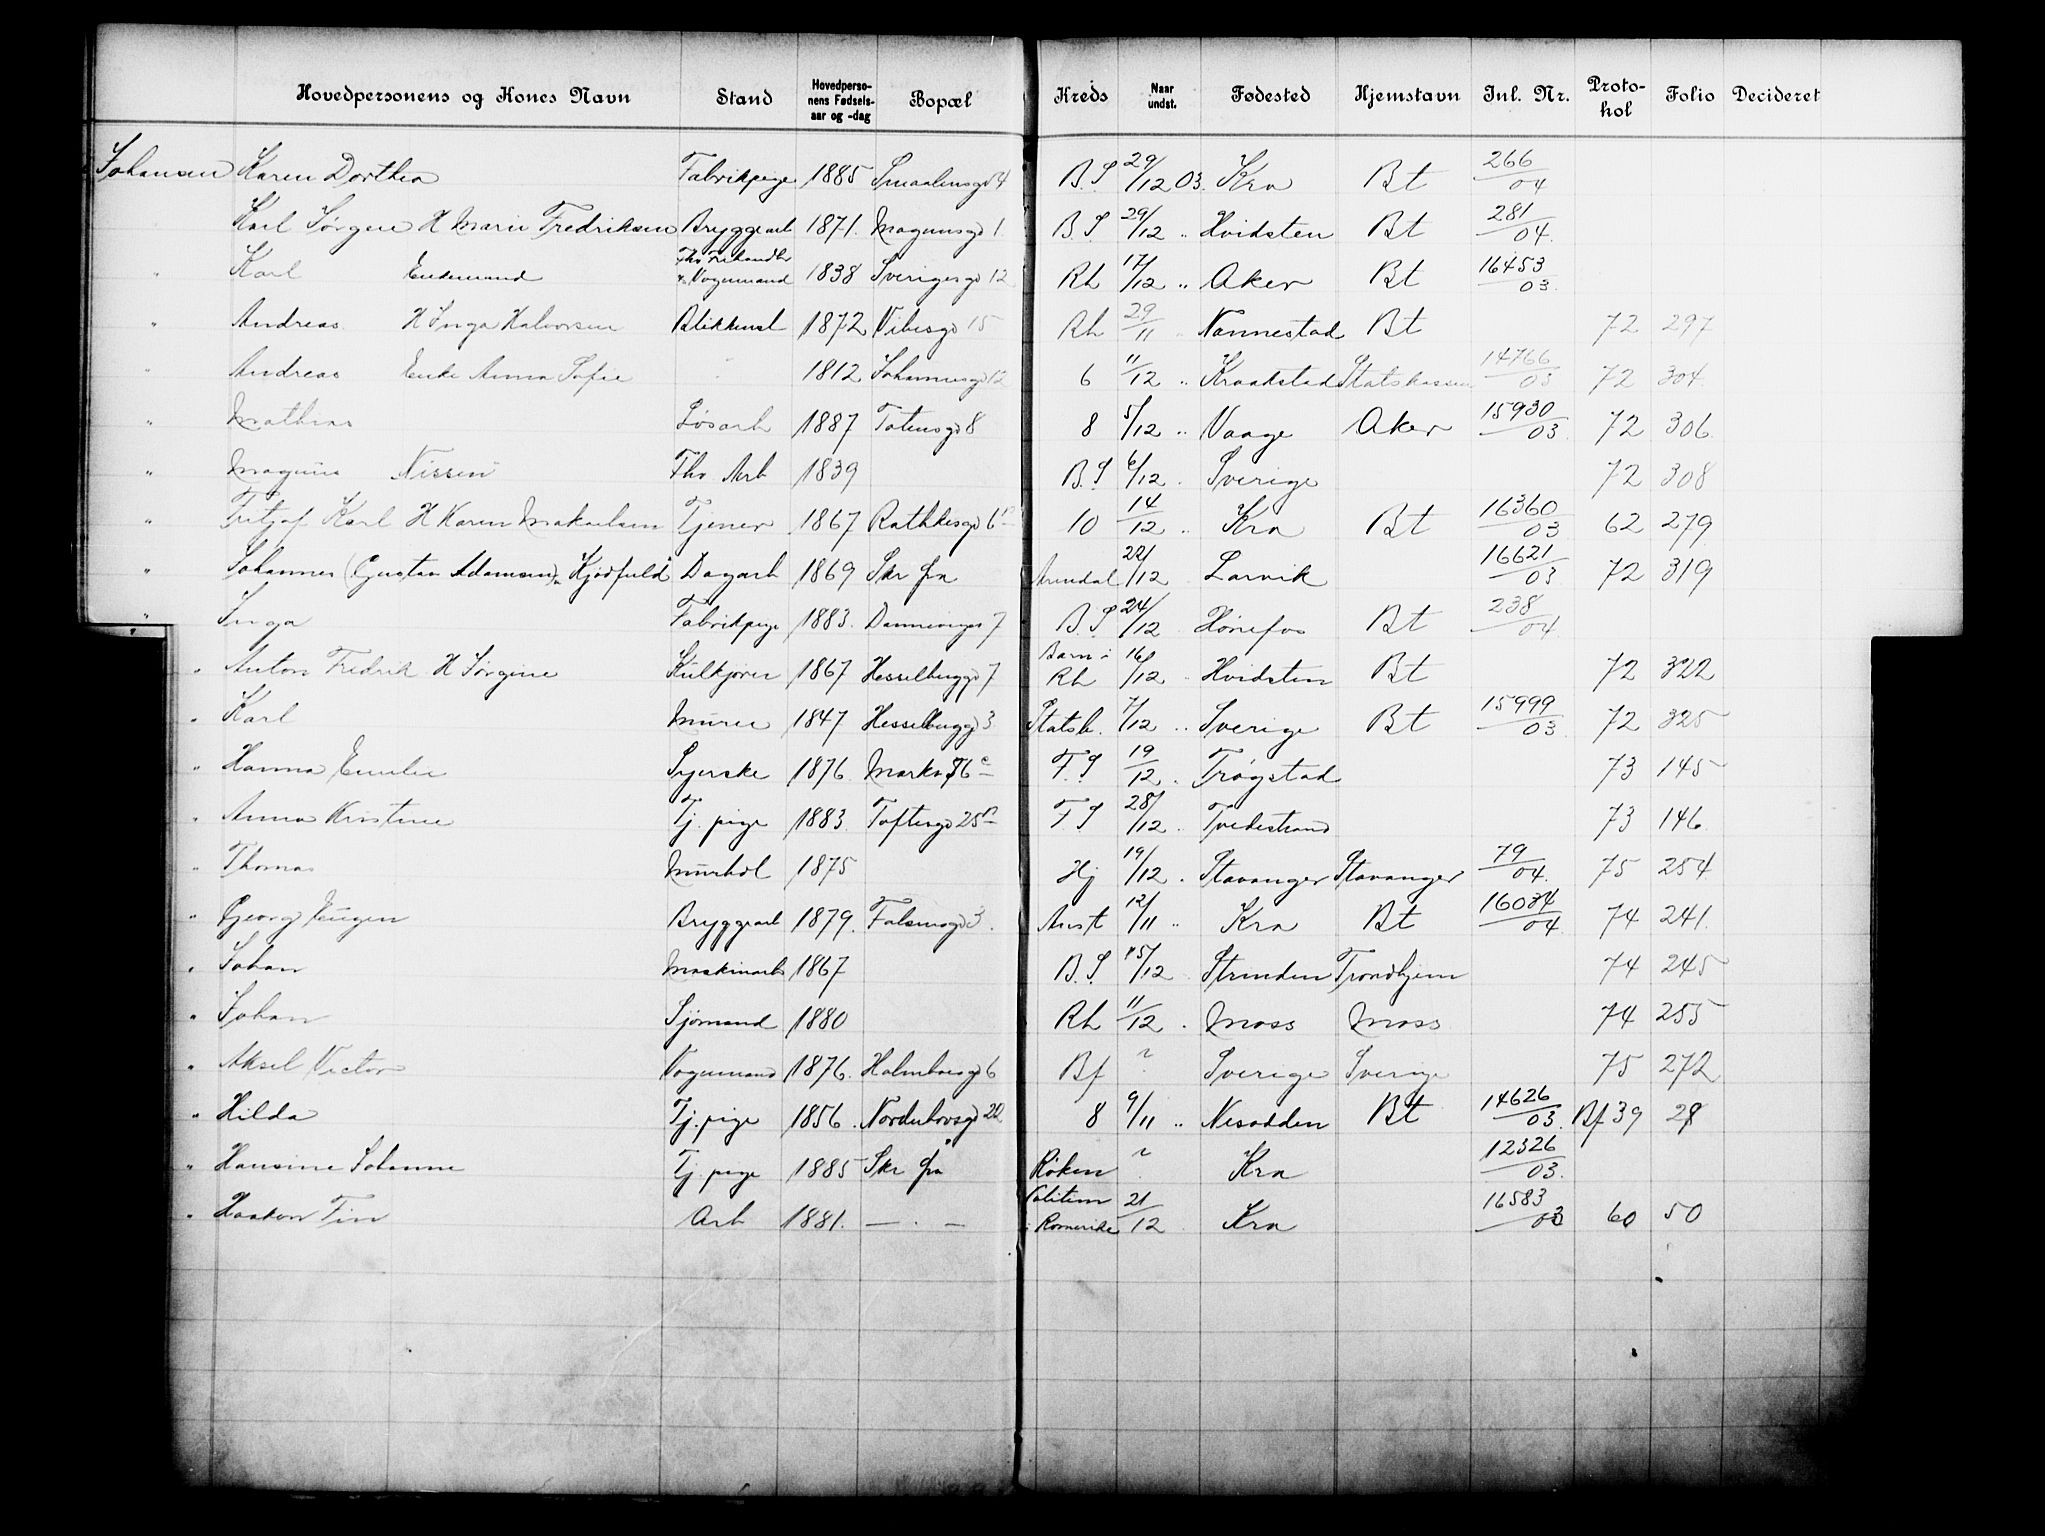 Hovedpersonens og Kones Navn Stand Hovedperso-nens Fødsels-aar og -dag Bopæl Kreds Naar undst. Fødested Hjemstavn Inl. Nr. Proto-kol Folio Decideret
Johansen Karen Dorthea Fabrikpige 1885 Smaalensgd 4 B.S 29/12 03. Kra Bt 266/04
Karl Jørgen H Marie Fredriksen Bryggearb 1871. Magnusgd 1 B.S 29/12 " Hvidsten Bt 281/04.
" Karl Enkemand Fhv Frihandler & Vognmand 1838 Sverigesgd 12 Rh 17/12 " Aker Bt 16453/03
" Andreas H Inga Halvorsen Blikkensl 1872 Vibesgd 15 Rh 29/11 " Nannestad Bt 72 297
" Andreas Enke Anna Sofie " 1812 Johannesgd 12 6 11/12 " Kraakstad Statskassen 14766/03 72 304.
" Mathias Løsarb 1887 Totensgd 8 8 5/12 " Vaage Aker 15930/03. 72 306.
" Magnus Nissen Fhv Arb 1839 B.S 6/12 . Sverige 72 308
" Fritjof Karl H Karen Makalsen Tjener 1867 Rathkesgd 6 10 14/12 " Kra Bt 16360/03 62 279
" Johannes (Gustav Adamsen) Kjødfuld Dagarb 1869 Skr fra Arendal 22/12 Larvik 16621/03 72 319
" Inga Fabrikpige 1883. Dannevigs 7 B.S 24/12 Hønefos Bt 238/04.
" Anton Fredrik H Jørgine Kulkjører 1867 Hesselberggd 7 Barn i Rh 16/12 " Hvidsten Bt 72 322
" Karl Murer 1847 Hesselberggd 3 Statsb. 7/12 " Sverige Bt 15999/03. 72 325
" Hanna Emilie Syerske 1876. Markv 76c F.S 19/12 . Trøgstad 73 145
" Anna Kristine Tj. pige 1883. Toftesgd 25 F S 28/12 . Tvedestrand 73 146.
" Thomas Murhdl 1875 Hj 19/12 . Stavanger Stavanger 79/04. 75 254.
" Georg Eugen Bryggearb 1879. Falsensgd 3. Anst 12/11 " Kra Bt 16034/04. 74 241.
" Johan Maskinarb 1867 B.S 15/12 . Strinden Trondhjem 74 245
" Johan Sjømand 1880 Rh 11/12 . Moss Moss 74 255
" Aksel Victor Vognmand 1876. Holmboesgd 6 Bf " Sverige Sverige 75 272
" Hilda Tj. pige 1856. Norderhovsgd 22 8 9/11 " Nesodden Bt 14626/03. Bf 39 28
" Hansine Johanne Tj. pige 1885 Skr fra Røken " Kra 12326/03.
" Haakon Fin Arb 1881. — . — Politim i Romerike 21/12 Kra 16583/03 60 50